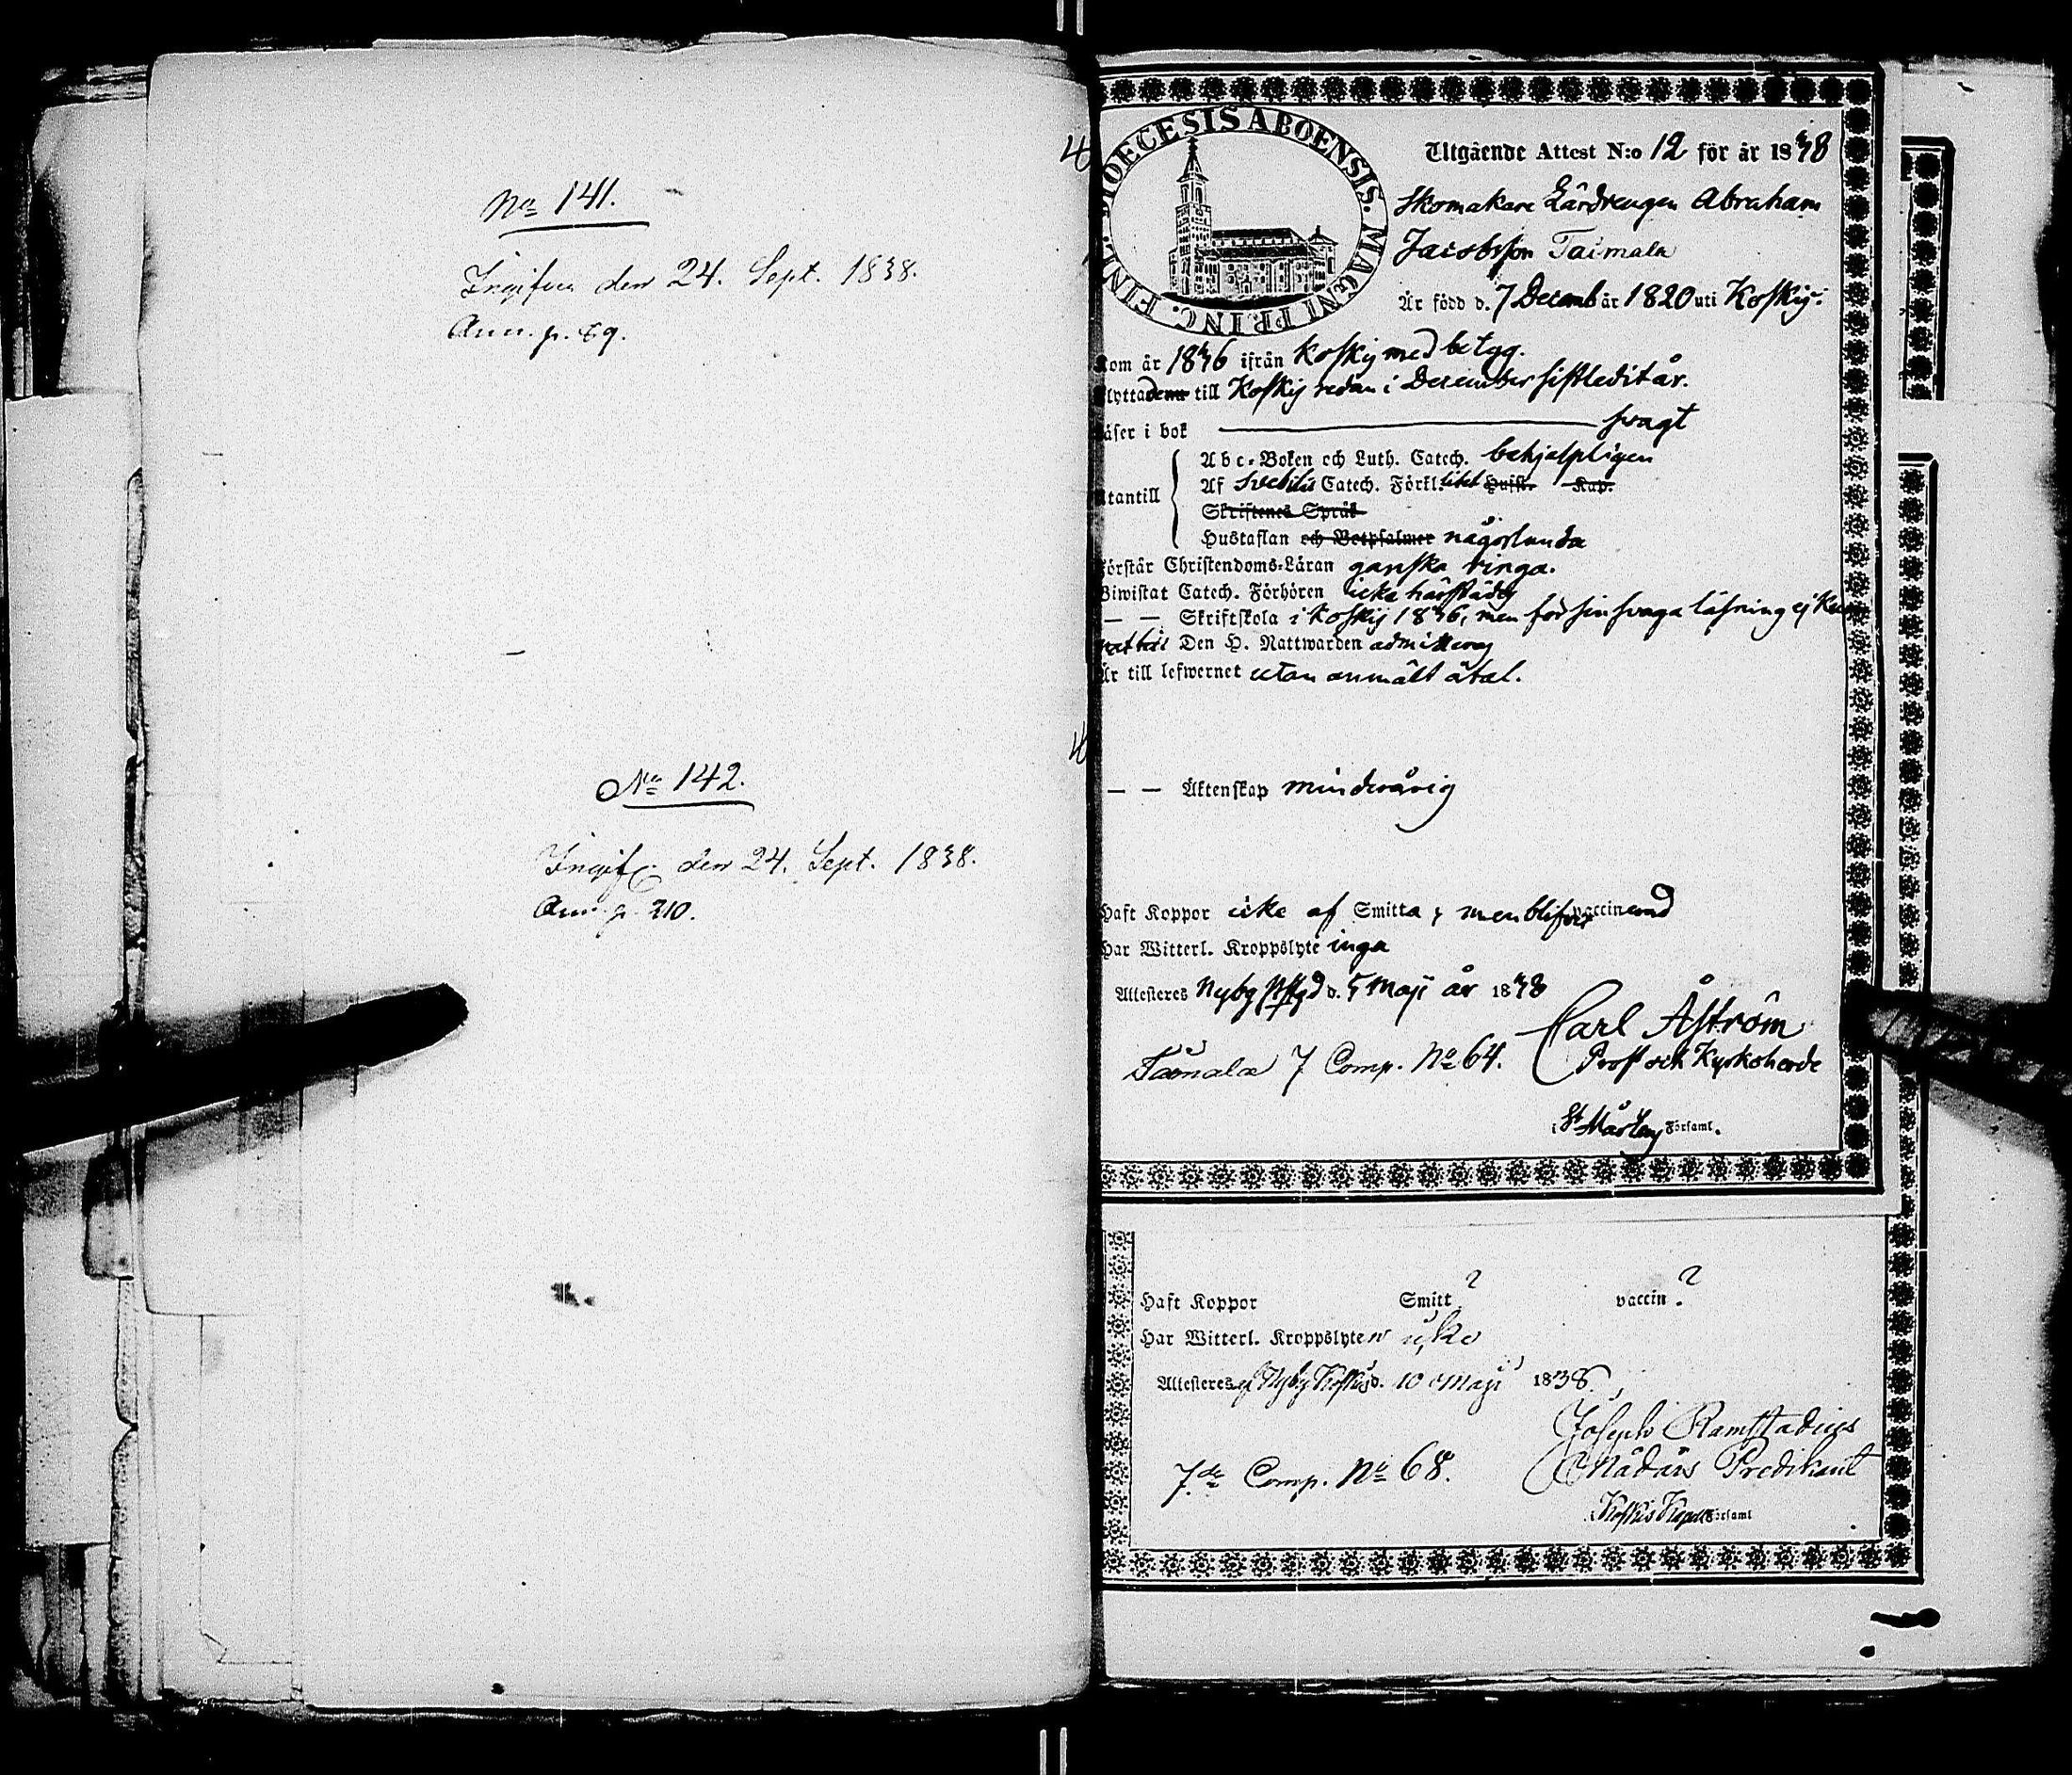 No 141.
Ingifven den 24. Sept. 1838.
Ann. p. 69.
No 142.
Ingif. den 24. Sept. 1838.
Ann. p. 210.
DIOECESIS ABOENSIS. MAGNI PRINC. FINL.
Utgående Attest N:o 12 för år 1838
Skomakare Lärdrengen Abraham
Jacobsson Taimala
Är född d. 7 Decemb år 1820 uti Koskis.
Kom år 1836 ifrån Koskij med betyg.
Flyttade till Koskij redan i December sistledit år.
Läser i bok svagt
Utantill
Abc-Boken och Luth. Catech. behjelpligen
Af Svebilii Catech. Förkl. litet Husst. Kap.
Skriftenes Språk
Hustaflan och Botpsalmer någorlunda
Förstår Christendoms-Läran ganska ringa.
Biwistat Catech. Förhören icke härstädes
— — Skriftskola i Koskij 1836, men för sin svaga läsning ej
Den H. Nattwarden admitteras
Är till lefwernet utan anmält åtal.
— — Äktenskap minderårig
Haft Koppor icke af Smitta, men blifvit vaccinerad
Har Witterl. Kroppslyte inga
Attesteres Nyby Pstgd d. 5 Maji år 1838
Carl Åström
Taimala 7 Comp. No 64.
Prost och Kyrkoherde
i St Mårtens Församl.
Haft Koppor Smitt ? vaccin. ?
Har Witterl. Kroppslyten icke
Attesteres af Nyby Koskis d. 10 Maji 1838.
Joseph Ramstadius
7de Comp. No 68.
Nådårs Predikant
i Koskis Kapell Församl